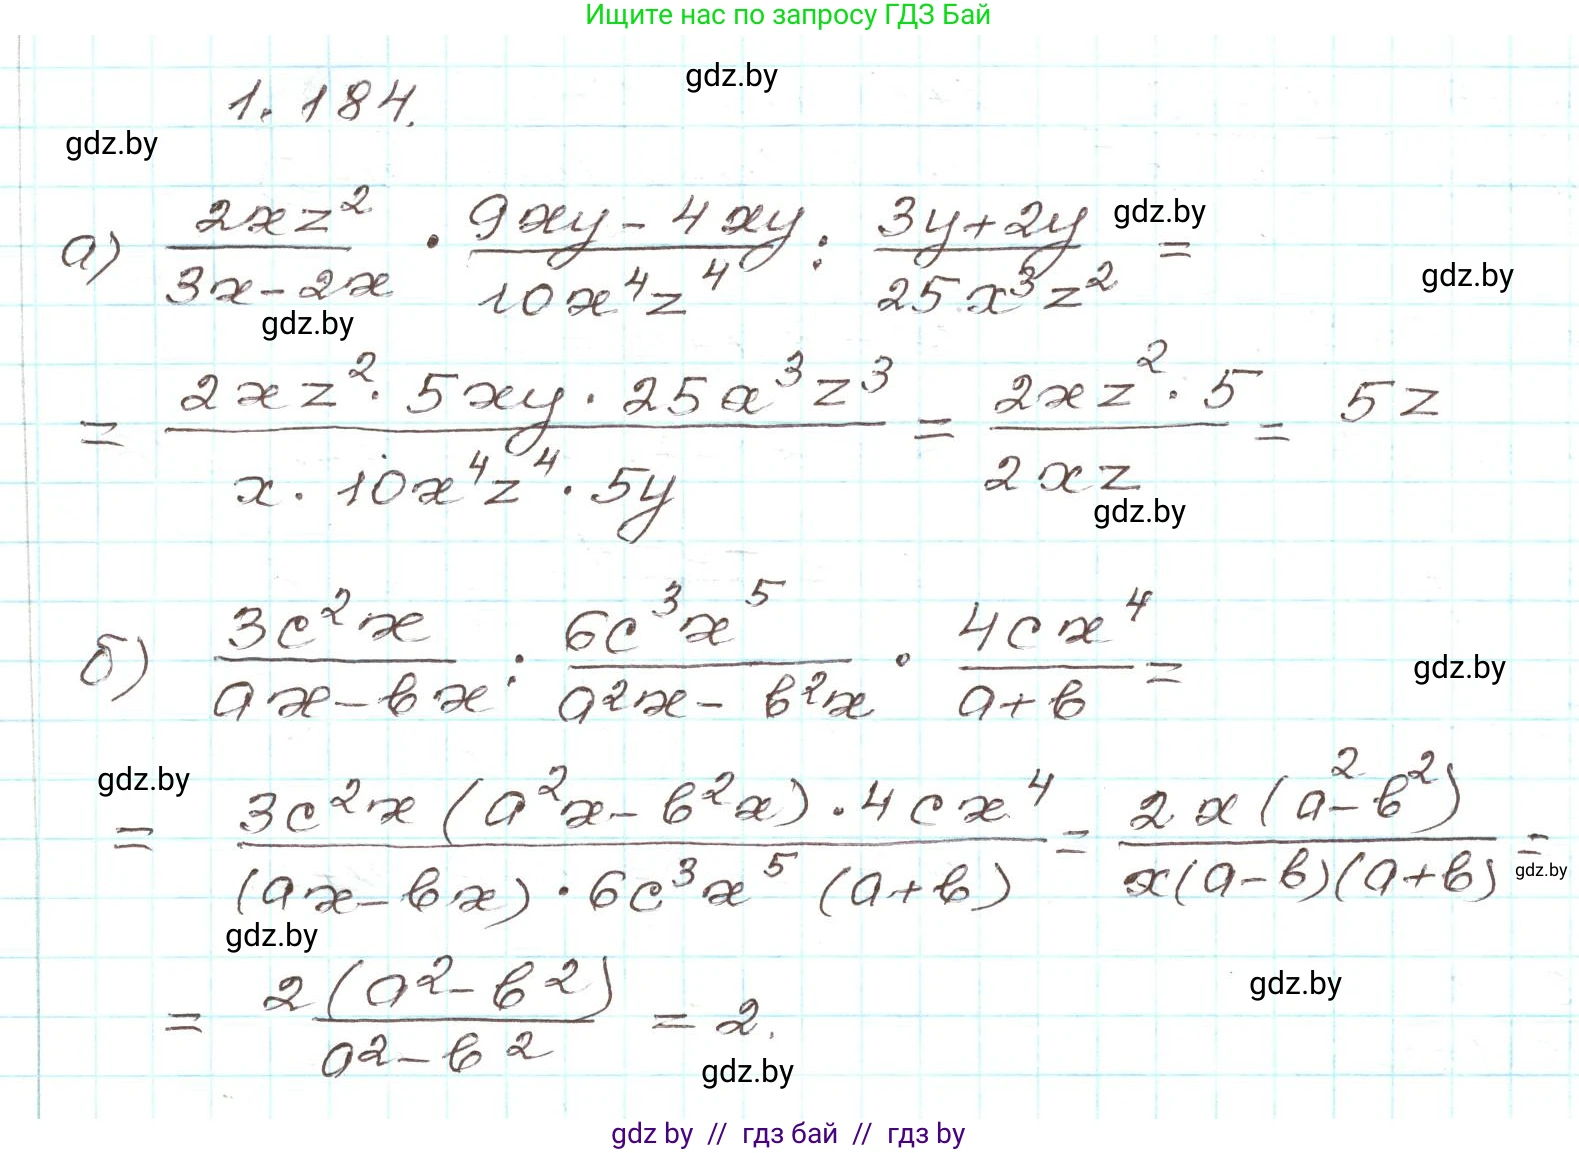 Ищите нас по запросу ГДЗ Бай
gdz.by
1.184.
gdz.by
а) \frac{2xz^2}{3x-2x} · \frac{9xy-4xy}{10x^4z^4} : \frac{3y+2y}{25x^3z^2} =
gdz.by
gdz.by
gdz.by
= \frac{2xz^2 · 5xy · 25x^3z^3}{x · 10x^4z^4 · 5y} = \frac{2xz^2 · 5}{2xz} = 5z
gdz.by
б) \frac{3c^2x}{ax-bx} : \frac{6c^3x^5}{a^2x-b^2x} · \frac{4cx^4}{a+b} =
gdz.by
gdz.by
= \frac{3c^2x(a^2x-b^2x) · 4cx^4}{(ax-bx) · 6c^3x^5(a+b)} = \frac{2x(a^2-b^2)}{x(a-b)(a+b)} =
gdz.by
gdz.by
= \frac{2(a^2-b^2)}{a^2-b^2} = 2.
gdz.by
gdz.by
gdz by // гдз бай // гдз by